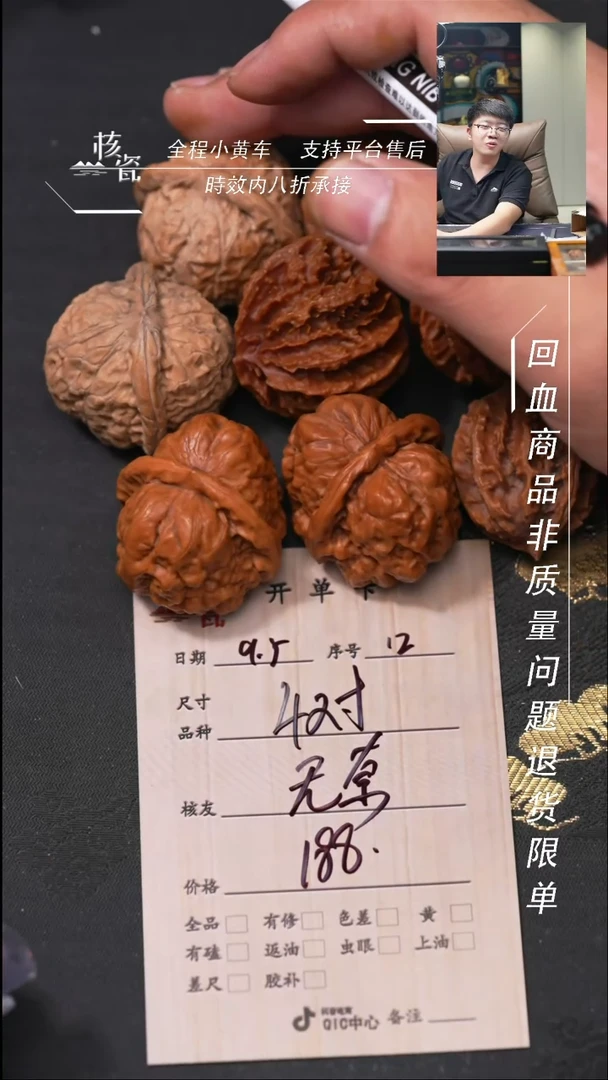 核瓷
全程小黄车 支持平台售后
時效内八折承接
回血商品非质量问题退货限单
开单卡
日期 9.5 序号 12
尺寸
品种 4对
核友 无原
价格 188.
全品 有修 色差 黄
有磕 返油 虫眼 上油
差尺 胶补
QIC中心 备注